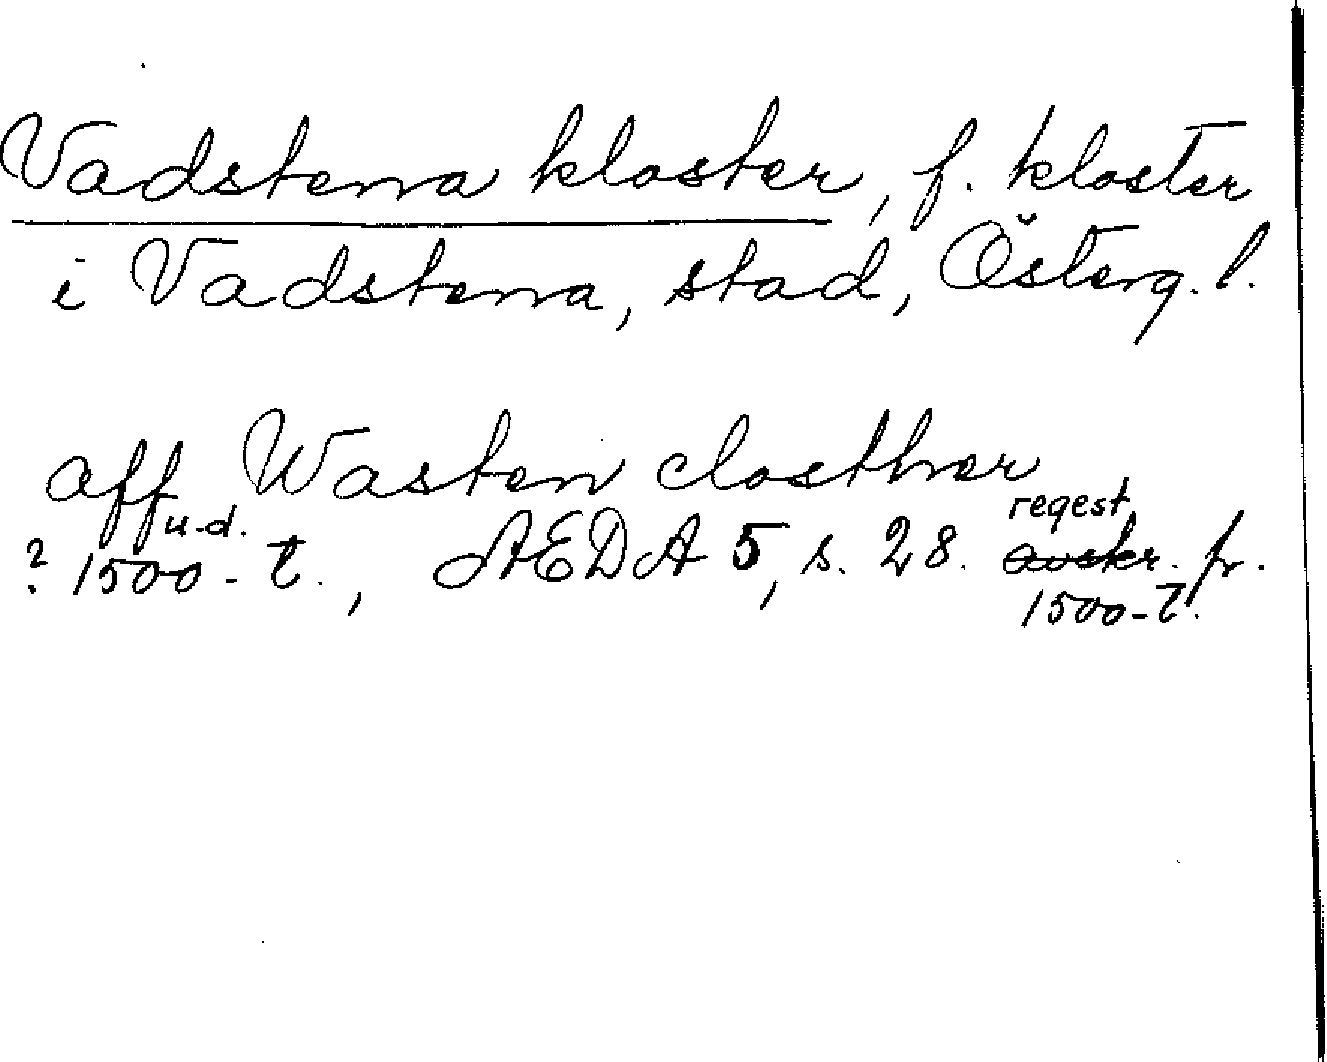 Vadstena kloster, f. kloster
i Vadstena, stad, Österg. l.
aff Wasten closther
u.d. regest
? 1500-t., AEDA 5, s. 28. avskr. fr.
1500-t.